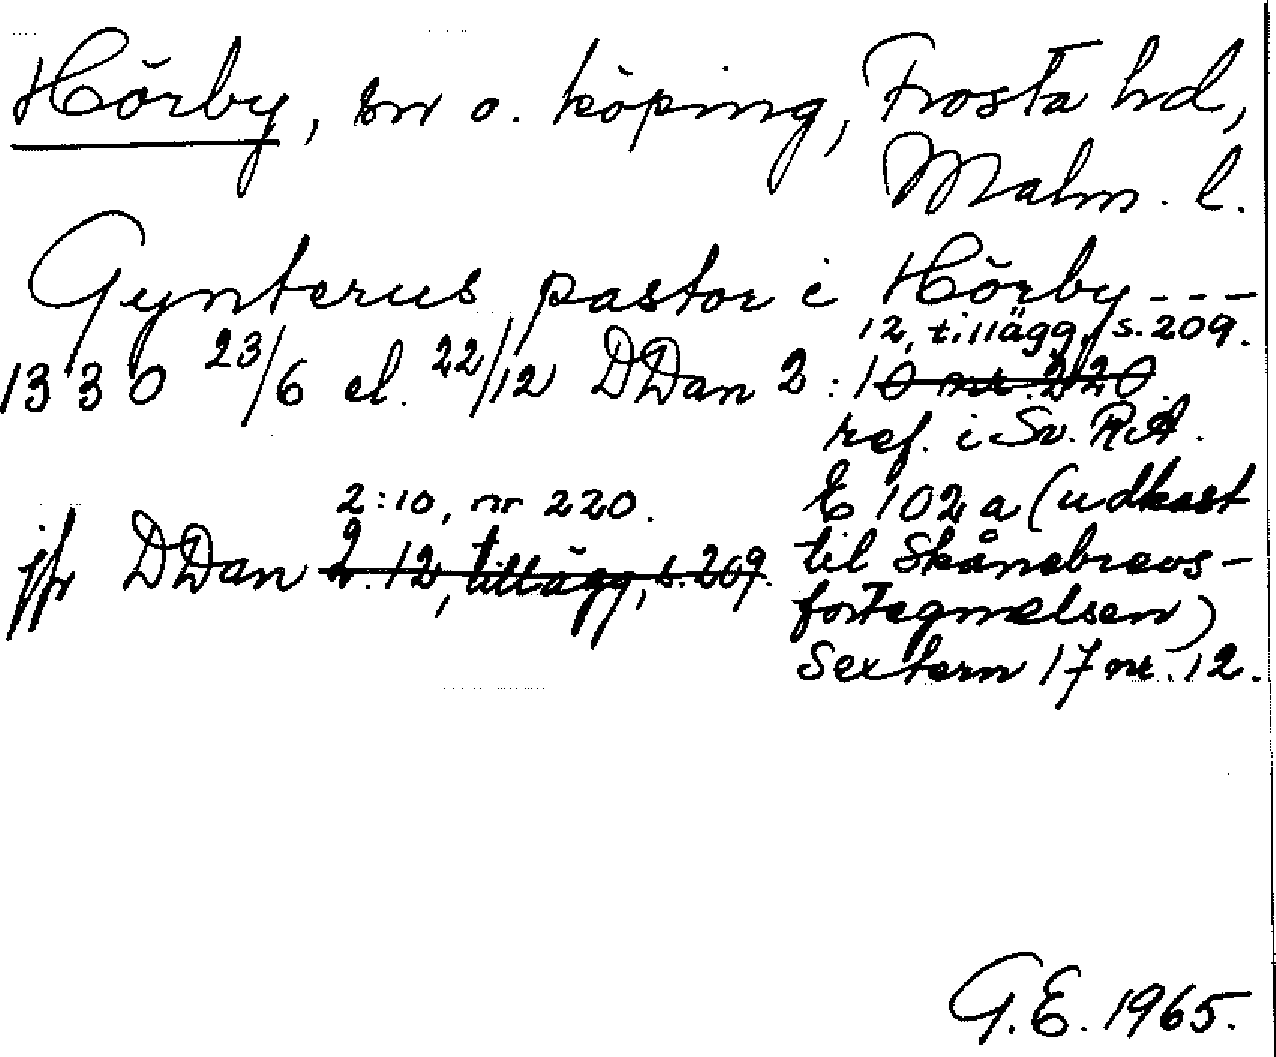 Hörby, sn o. köping, Frosta hd,
Malm. l.
Gynterus pastor i Hörby - - -
12, tillägg, s. 209.
1330 23/6 el. 22/12 DDan 2 : 10 nr. 220
ref. i Sv. RA.
2:10, nr 220. E 102 a (udkast
jfr DDan 2. 12, tillägg, s. 209. til Skånebrevs-
fortegnelsen)
Sextern 17 nr. 12.
G.E. 1965.